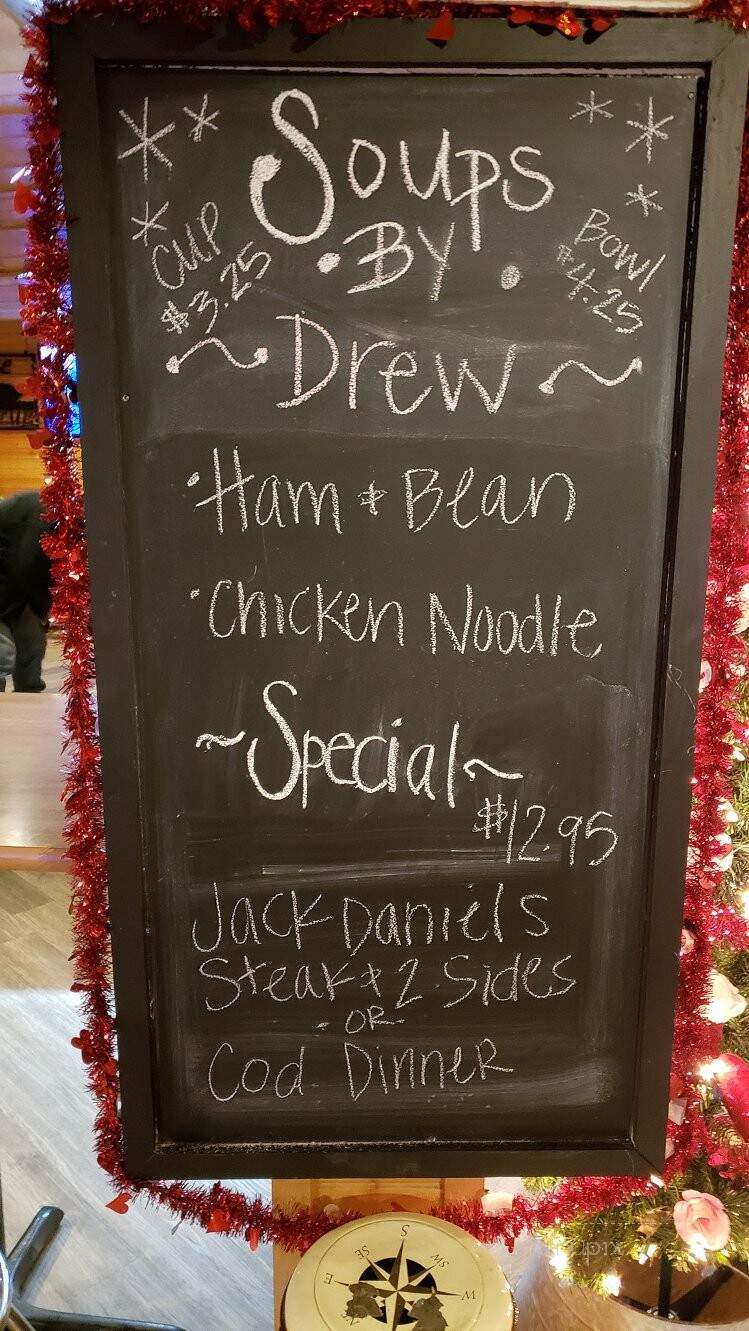 Soups
CUP
$3.25
• BY •
Bowl
$4.25
~ Drew ~
• Ham & Bean
• Chicken Noodle
~ Special ~
$12.95
Jack Daniels
Steak + 2 Sides
- OR -
Cod Dinner
S
SE
SW
E
W